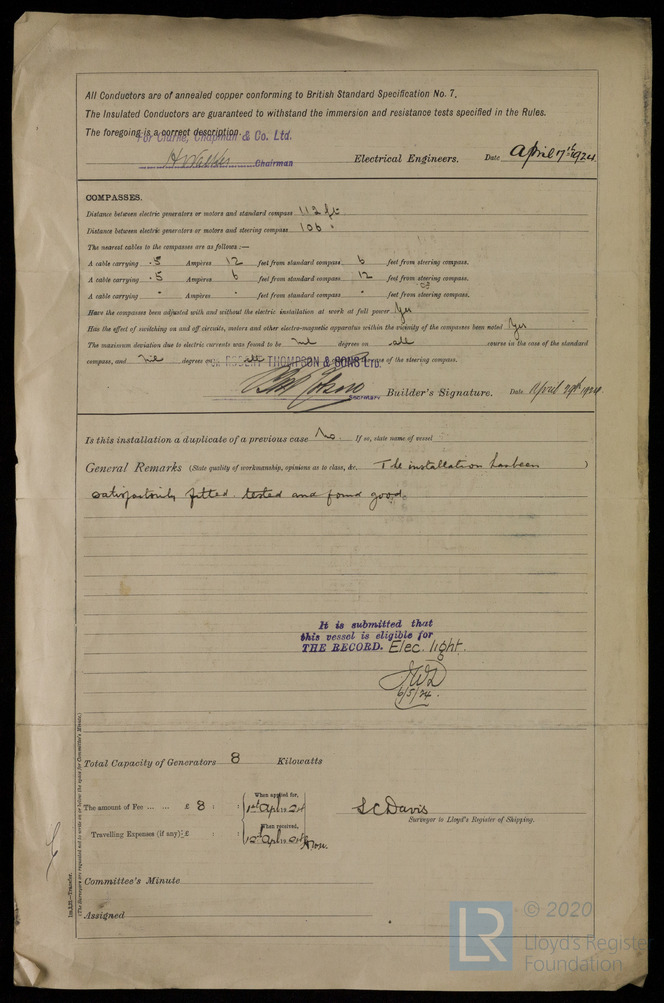 All Conductors are of annealed copper conforming to British Standard Specification No. 7.
The Insulated Conductors are guaranteed to withstand the immersion and resistance tests specified in the Rules.
The foregoing is a correct description.
For Clarke, Chapman & Co. Ltd.
Chairman Electrical Engineers. Date April 7th 1924
COMPASSES.
Distance between electric generators or motors and standard compass 112 ft
Distance between electric generators or motors and steering compass 106 "
The nearest cables to the compasses are as follows:—
A cable carrying .5 Ampères 12 feet from standard compass 6 feet from steering compass.
A cable carrying .5 Ampères 6 feet from standard compass 12 feet from steering compass.
A cable carrying " Ampères " feet from standard compass " feet from steering compass.
Have the compasses been adjusted with and without the electric installation at work at full power Yes
Has the effect of switching on and off circuits, motors and other electro-magnetic apparatus within the vicinity of the compasses been noted Yes
The maximum deviation due to electric currents was found to be nil degrees on all course in the case of the standard
compass, and nil degrees on all course of the steering compass.
ROBERT THOMPSON & SONS LTD.
Secretary Builder's Signature. Date April 29th 1924
Is this installation a duplicate of a previous case No. If so, state name of vessel
General Remarks (State quality of workmanship, opinions as to class, &c. The installation has been )
satisfactorily fitted tested and found good.
It is submitted that
this vessel is eligible for
THE RECORD. Elec. light.
6/5/24.
Total Capacity of Generators 8 Kilowatts
The amount of Fee ... ... £ 8 : :
When applied for,
1st Apl 1924
Travelling Expenses (if any) £ : :
When received,
Apl 1924
S C Davis
Surveyor to Lloyd's Register of Shipping.
Committee's Minute
Assigned
1m.3.21.—Transfer.
(The Surveyors are requested not to write on or below the space for Committee's Minute.)
LR © 2020
Lloyd's Register
Foundation